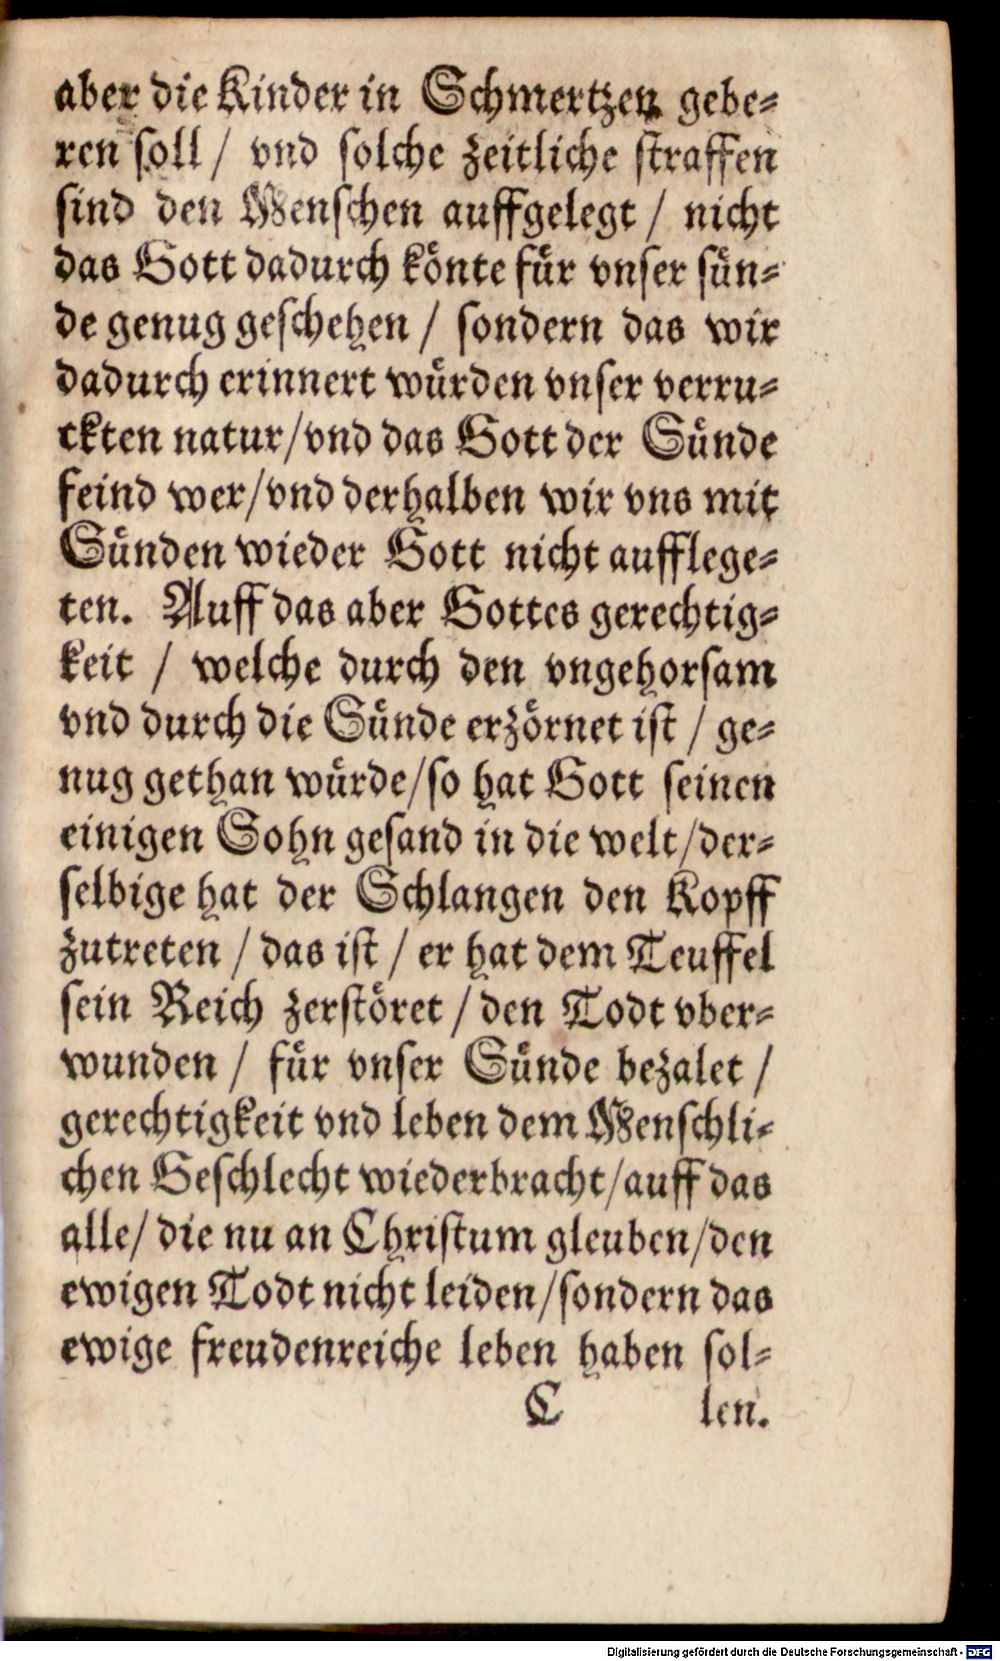 aber die Kinder in Schmertzen gebe-
ren soll / vnd solche zeitliche straffen
sind den Menschen auffgelegt / nicht
das Gott dadurch könte für vnser sün-
de genug geschehen / sondern das wir
dadurch erinnert würden vnser verru-
ckten natur/vnd das Gott der Sünde
feind wer/vnd derhalben wir vns mit
Sünden wieder Gott nicht aufflege-
ten. Auff das aber Gottes gerechtig-
keit / welche durch den vngehorsam
vnd durch die Sünde erzörnet ist / ge-
nug gethan würde/so hat Gott seinen
einigen Sohn gesand in die welt/der-
selbige hat der Schlangen den Kopff
zutreten / das ist / er hat dem Teuffel
sein Reich zerstöret / den Todt vber-
wunden / für vnser Sünde bezalet /
gerechtigkeit vnd leben dem Menschli-
chen Geschlecht wiederbracht/auff das
alle/ die nu an Christum gleuben/den
ewigen Todt nicht leiden/sondern das
ewige freudenreiche leben haben sol-
C len.
Digitalisierung gefördert durch die Deutsche Forschungsgemeinschaft - DFG